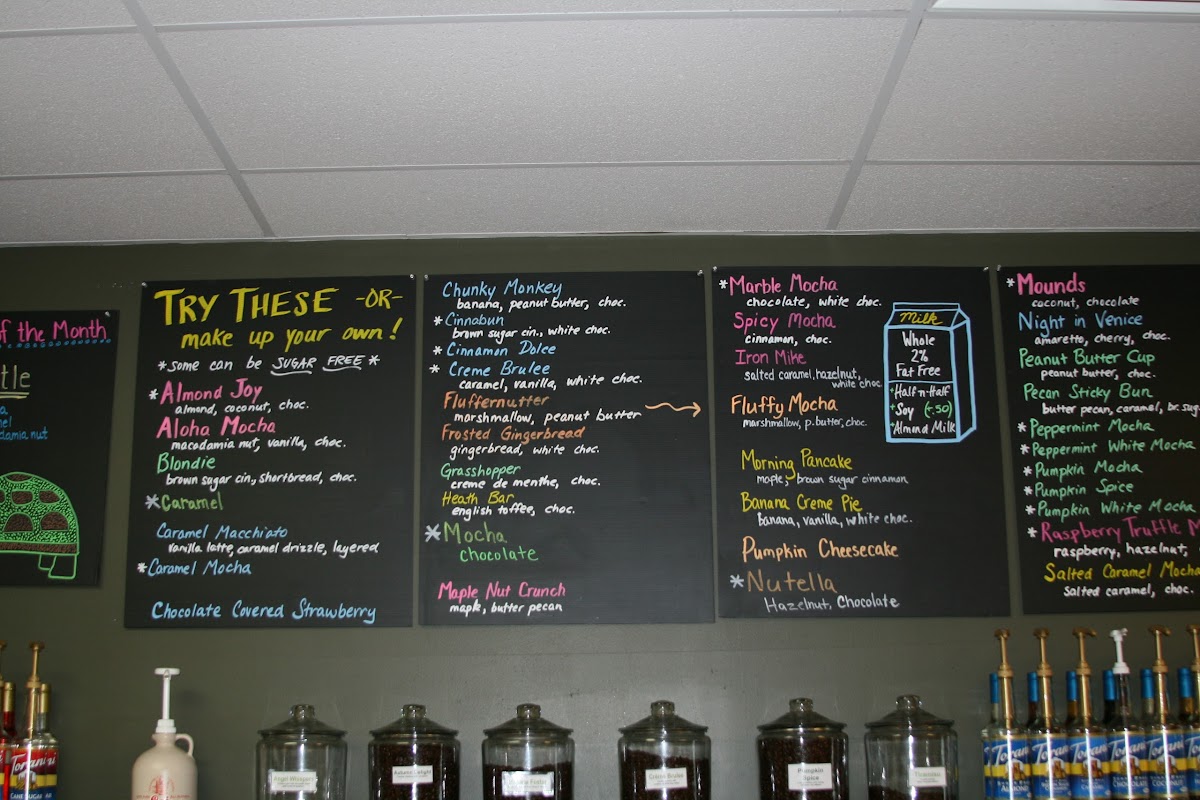 of the Month
tle
damia nut
TRY THESE -OR-
make up your own!
*some can be SUGAR FREE*
*Almond Joy
almond, coconut, choc.
Aloha Mocha
macadamia nut, vanilla, choc.
Blondie
brown sugar cin., shortbread, choc.
*Caramel
Caramel Macchiato
vanilla latte, caramel drizzle, layered
*Caramel Mocha
Chocolate Covered Strawberry
Chunky Monkey
banana, peanut butter, choc.
*Cinnabun
brown sugar cin., white choc.
*Cinnamon Dolce
*Creme Brulee
caramel, vanilla, white choc.
Fluffernutter
marshmallow, peanut butter
Frosted Gingerbread
gingerbread, white choc.
Grasshopper
creme de menthe, choc.
Heath Bar
english toffee, choc.
*Mocha
chocolate
Maple Nut Crunch
maple, butter pecan
*Marble Mocha
chocolate, white choc.
Spicy Mocha
cinnamon, choc.
Iron Mike
salted caramel, hazelnut,
white choc.
Fluffy Mocha
marshmallow, p.butter, choc.
Morning Pancake
maple, brown sugar cinnamon
Banana Creme Pie
Banana, vanilla, white choc.
Pumpkin Cheesecake
*Nutella
Hazelnut, Chocolate
Milk
Whole
2%
Fat Free
+Half-n-Half
+Soy (+.50)
+Almond Milk
*Mounds
coconut, chocolate
Night in Venice
amaretto, cherry, choc.
Peanut Butter Cup
peanut butter, choc.
Pecan Sticky Bun
butter pecan, caramel, br. sug
*Peppermint Mocha
*Peppermint White Mocha
*Pumpkin Mocha
*Pumpkin Spice
*Pumpkin White Mocha
*Raspberry Truffle M
raspberry, hazelnut,
Salted Caramel Mocha
salted caramel, choc.
Torani
CANE SUGAR
Autumn Delight
Creme Brulee
Pumpkin
Spice
Tiramisu
Torani
Torani
Torani
Torani
CHOCOLATE
Torani
COCONUT
Torani